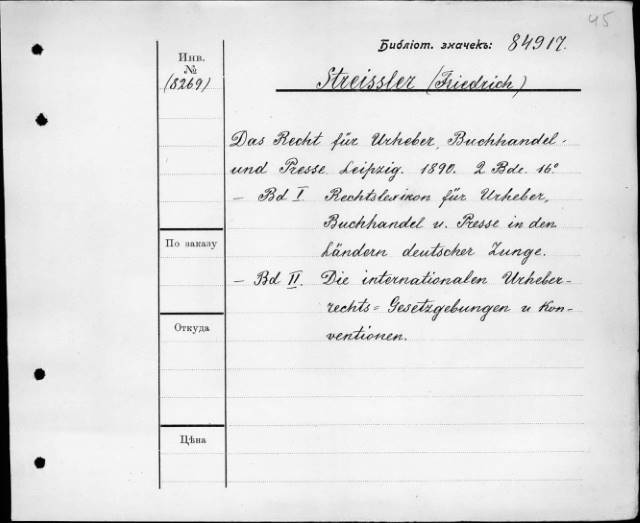 45
Библіот. значекъ: 84917.
Инв.
№
(8269)
Streissler (Friedrich)
Das Recht für Urheber, Buchhandel-
und Presse. Leipzig. 1890. 2 Bde. 16°
— Bd I Rechtslexikon für Urheber,
Buchhandel u. Presse in den
Ländern deutscher Zunge.
— Bd II. Die internationalen Urheber-
rechts=Gesetzgebungen u Kon-
ventionen.
По заказу
Откуда
Цѣна